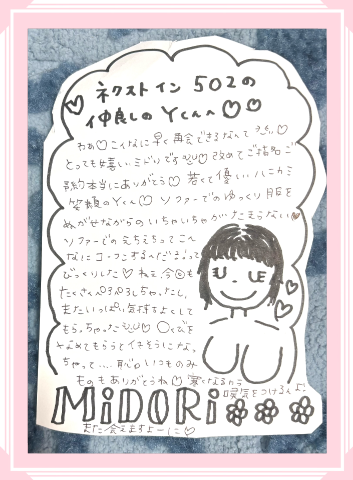 ネクストイン 502の
仲良しの Yくんへ♡♡
わあ♡こんなに早く再会できるなんて
とっても嬉しいミドリです 改めてご指名ご
予約本当にありがとう♡ 若くて優しいハニカミ
笑顔のYくん♡ ソファーでのゆっくり服を
ぬがせながらのいちゃいちゃがたまらない♡
ソファーでのえちえちってこん
なにコーフンするんだ
びっくりした♡ ねぇ、今回も
たくさん しちゃったし、
またいっぱい気持ちよくして
もらっちゃった
なめてもらうとイキそうにな
ちゃって…. いつものみ
ものもありがとうね♡ 寒くなるから
換気をつけるんよ♪
MiDORi
また会えますよーに♡